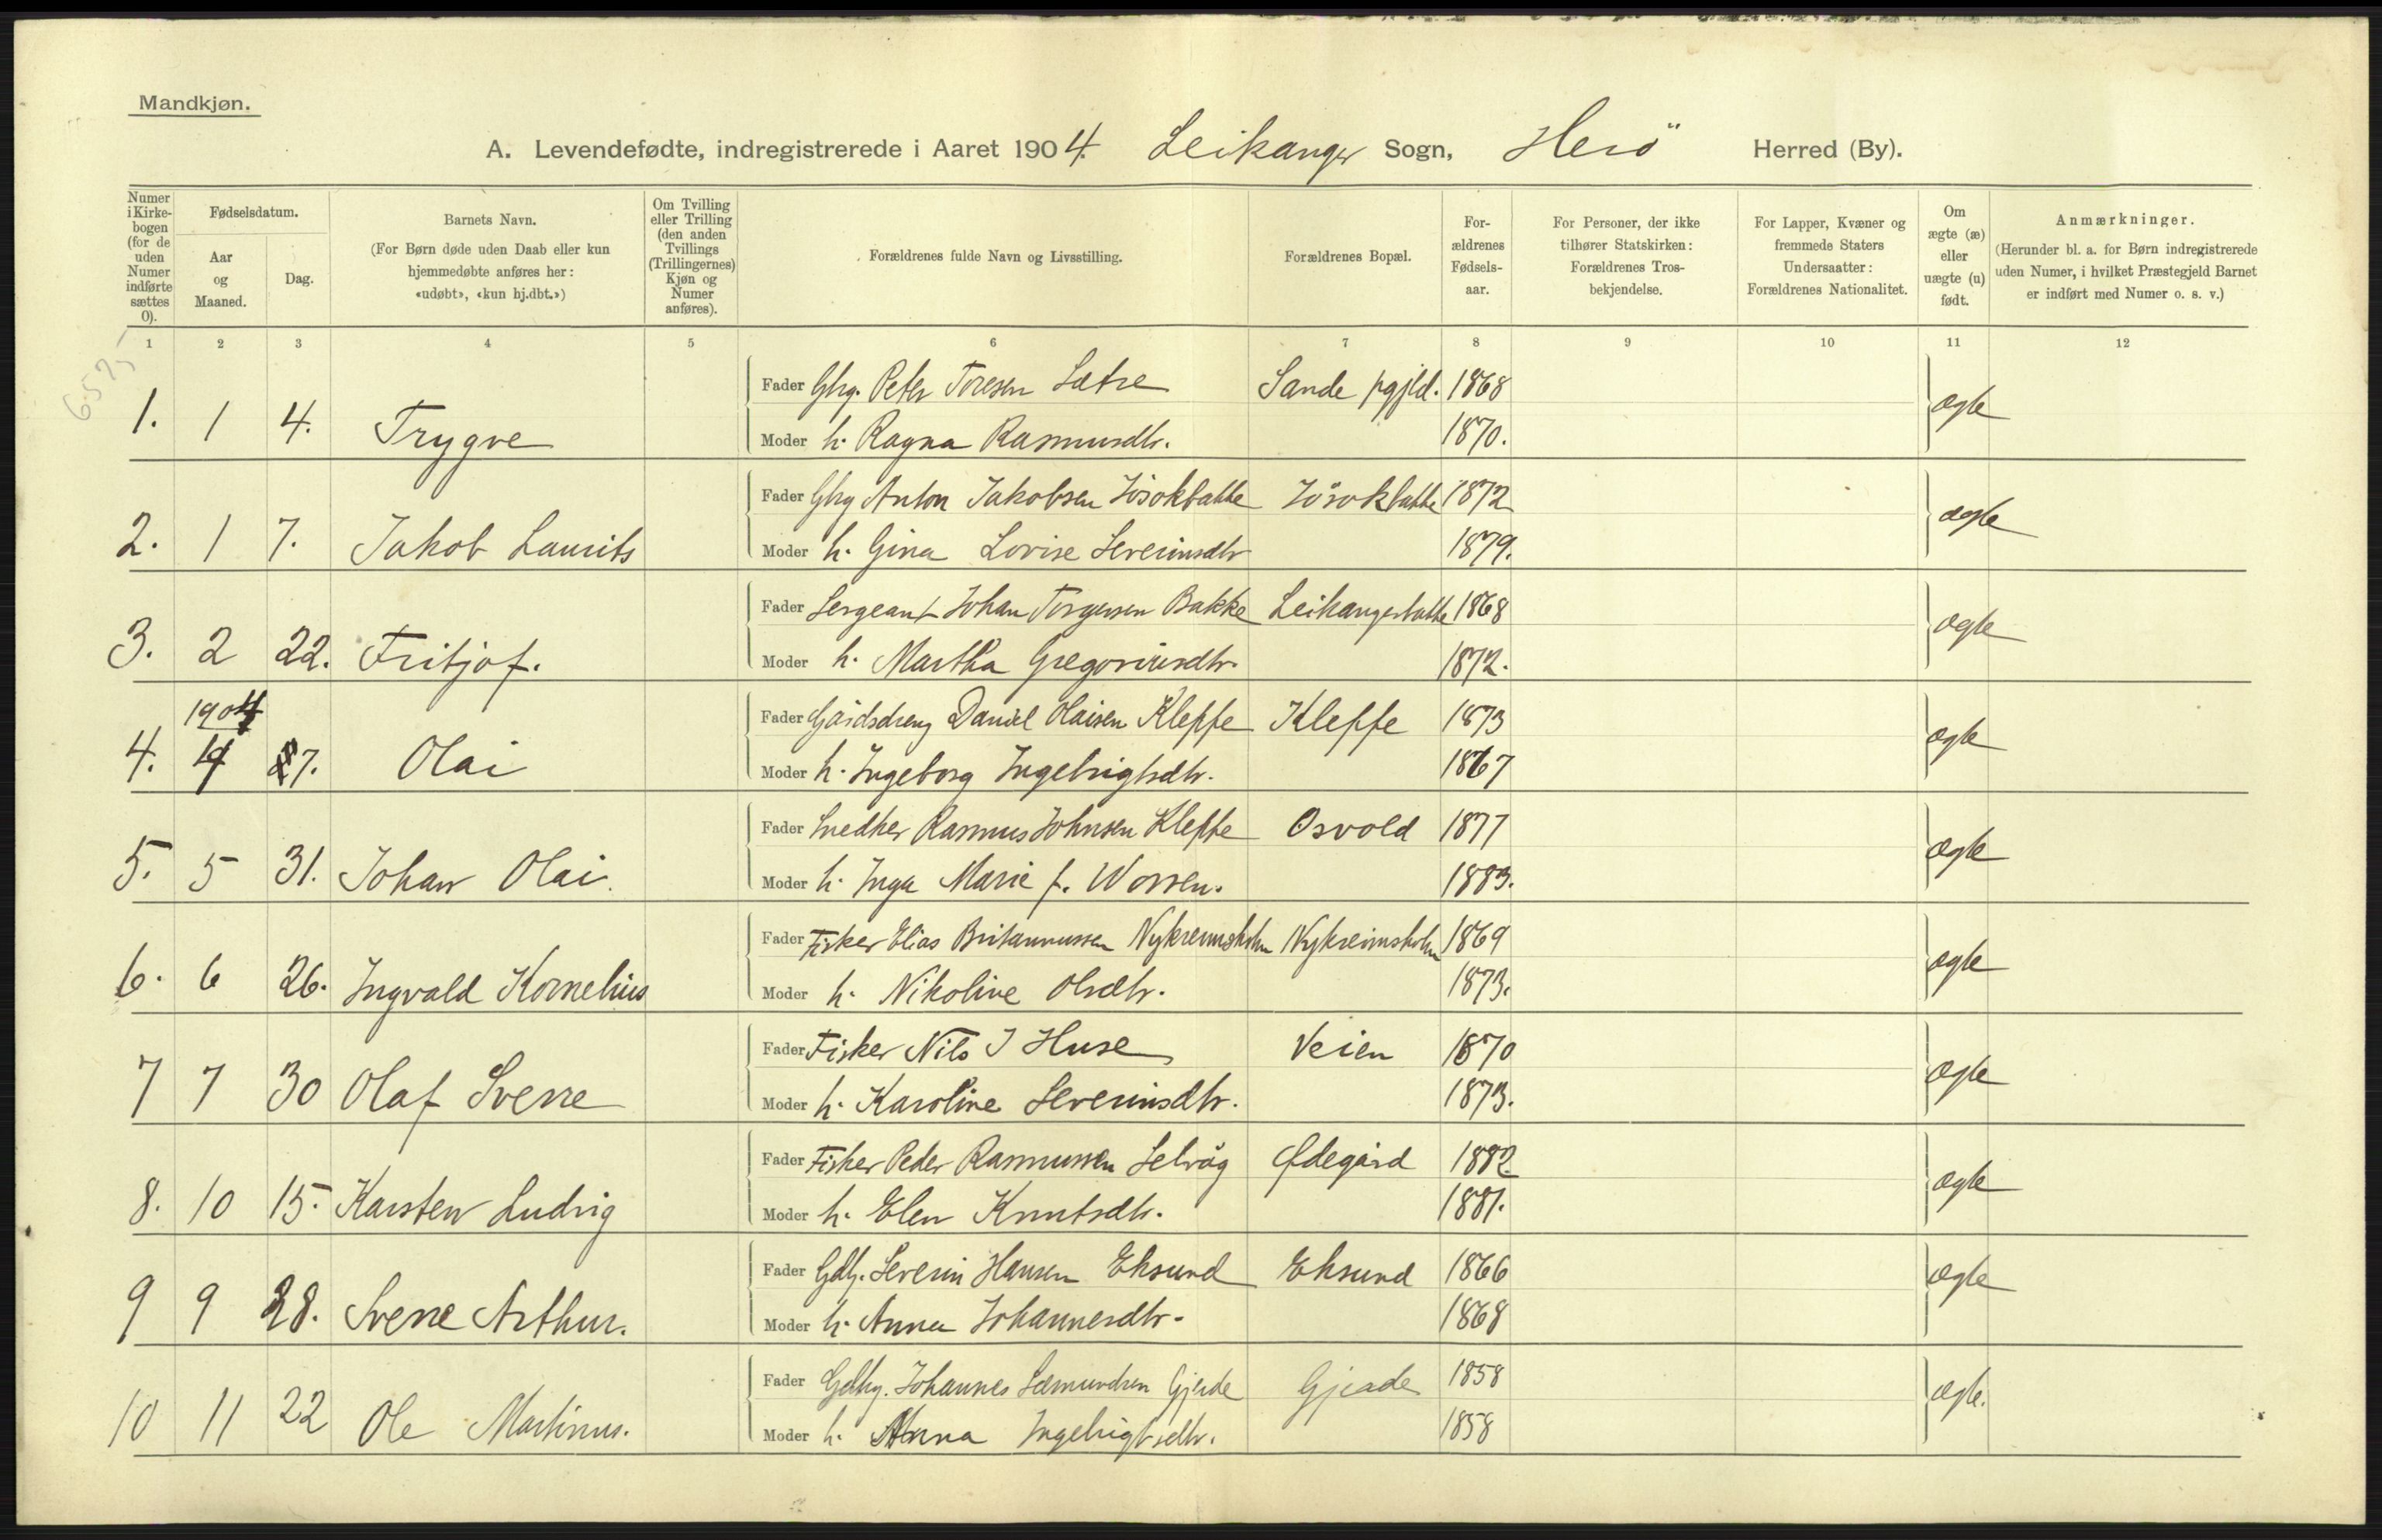 Mandkjøn.
A. Levendefødte, indregistrerede i Aaret 1904. Leikanger Sogn, Herö Herred (By).
Numer i Kirkebogen (for de uden Numer indførte sættes 0).
Fødselsdatum.
Aar og Maaned.
Dag.
Barnets Navn.
(For Børn døde uden Daab eller kun hjemmedøbte anføres her: «udøbt», «kun hj.dbt.»)
Om Tvilling eller Trilling (den anden Tvillings (Trillingernes) Kjøn og Numer anføres).
Forældrenes fulde Navn og Livsstilling.
Forældrenes Bopæl.
Forældrenes Fødselsaar.
For Personer, der ikke tilhører Statskirken: Forældrenes Trosbekjendelse.
For Lapper, Kvæner og fremmede Staters Undersaatter: Forældrenes Nationalitet.
Om ægte (æ) eller uægte (u) født.
Anmærkninger.
(Herunder bl. a. for Børn indregistrerede uden Numer, i hvilket Præstegjeld Barnet er indført med Numer o. s. v.)
1 2 3 4 5 6 7 8 9 10 11 12
6575
Fader Gbrg. Peter Toresen Sætre Sande pgjld. 1868
1. 1 4. Trygve ægte
Moder h. Ragna Rasmusdtr. 1870.
Fader Gbrg Anton Jakobsen Jösokbakke Jösokbakke 1872
2. 1 7. Jakob Laurits ægte
Moder h. Gina Lovise Severinsdtr 1879.
Fader Sergeant Johan Torgersen Bakke Leikangerbakke 1868
3. 2 22. Fritjof. ægte
Moder h. Martha Gregoriusdtr. 1872.
1904
Fader Gårdsdreng Daniel Olaisen Kleppe Kleppe 1873
4. 7. Olai ægte
Moder h. Ingeborg Ingebrigtsdtr. 1867
Fader Snedker Rasmus Johnsen Kleppe Osvold 1877
5. 5 31. Johan Olai. ægte
Moder h. Inga Marie f. Worren. 1883.
Fader Fisker Elias Britannussen Nykreimsholm Nykreimsholm 1869
6. 6 26. Ingvald Kornelius ægte
Moder h. Nikoline Olsdtr. 1873.
Fader Fisker Nils J Huse Veien 1870
7 7 30 Olaf Sverre ægte
Moder h. Karoline Severinsdtr. 1873.
Fader Fisker Peder Rasmussen Selvåg Ødegård 1882
8. 10 15. Karsten Ludvig ægte
Moder h. Elen Knutsdtr. 1881.
Fader Gdbr. Severin Hansen Eksund Eksund 1866
9 9 28. Sverre Arthur. ægte
Moder h. Anna Johannesdtr. 1868
Fader Gdbrg. Johannes Sæmundsen Gjerde Gjerde 1858
10 11 22 Ole Martinus. ægte.
Moder h. Anna Ingebrigtsdtr. 1858